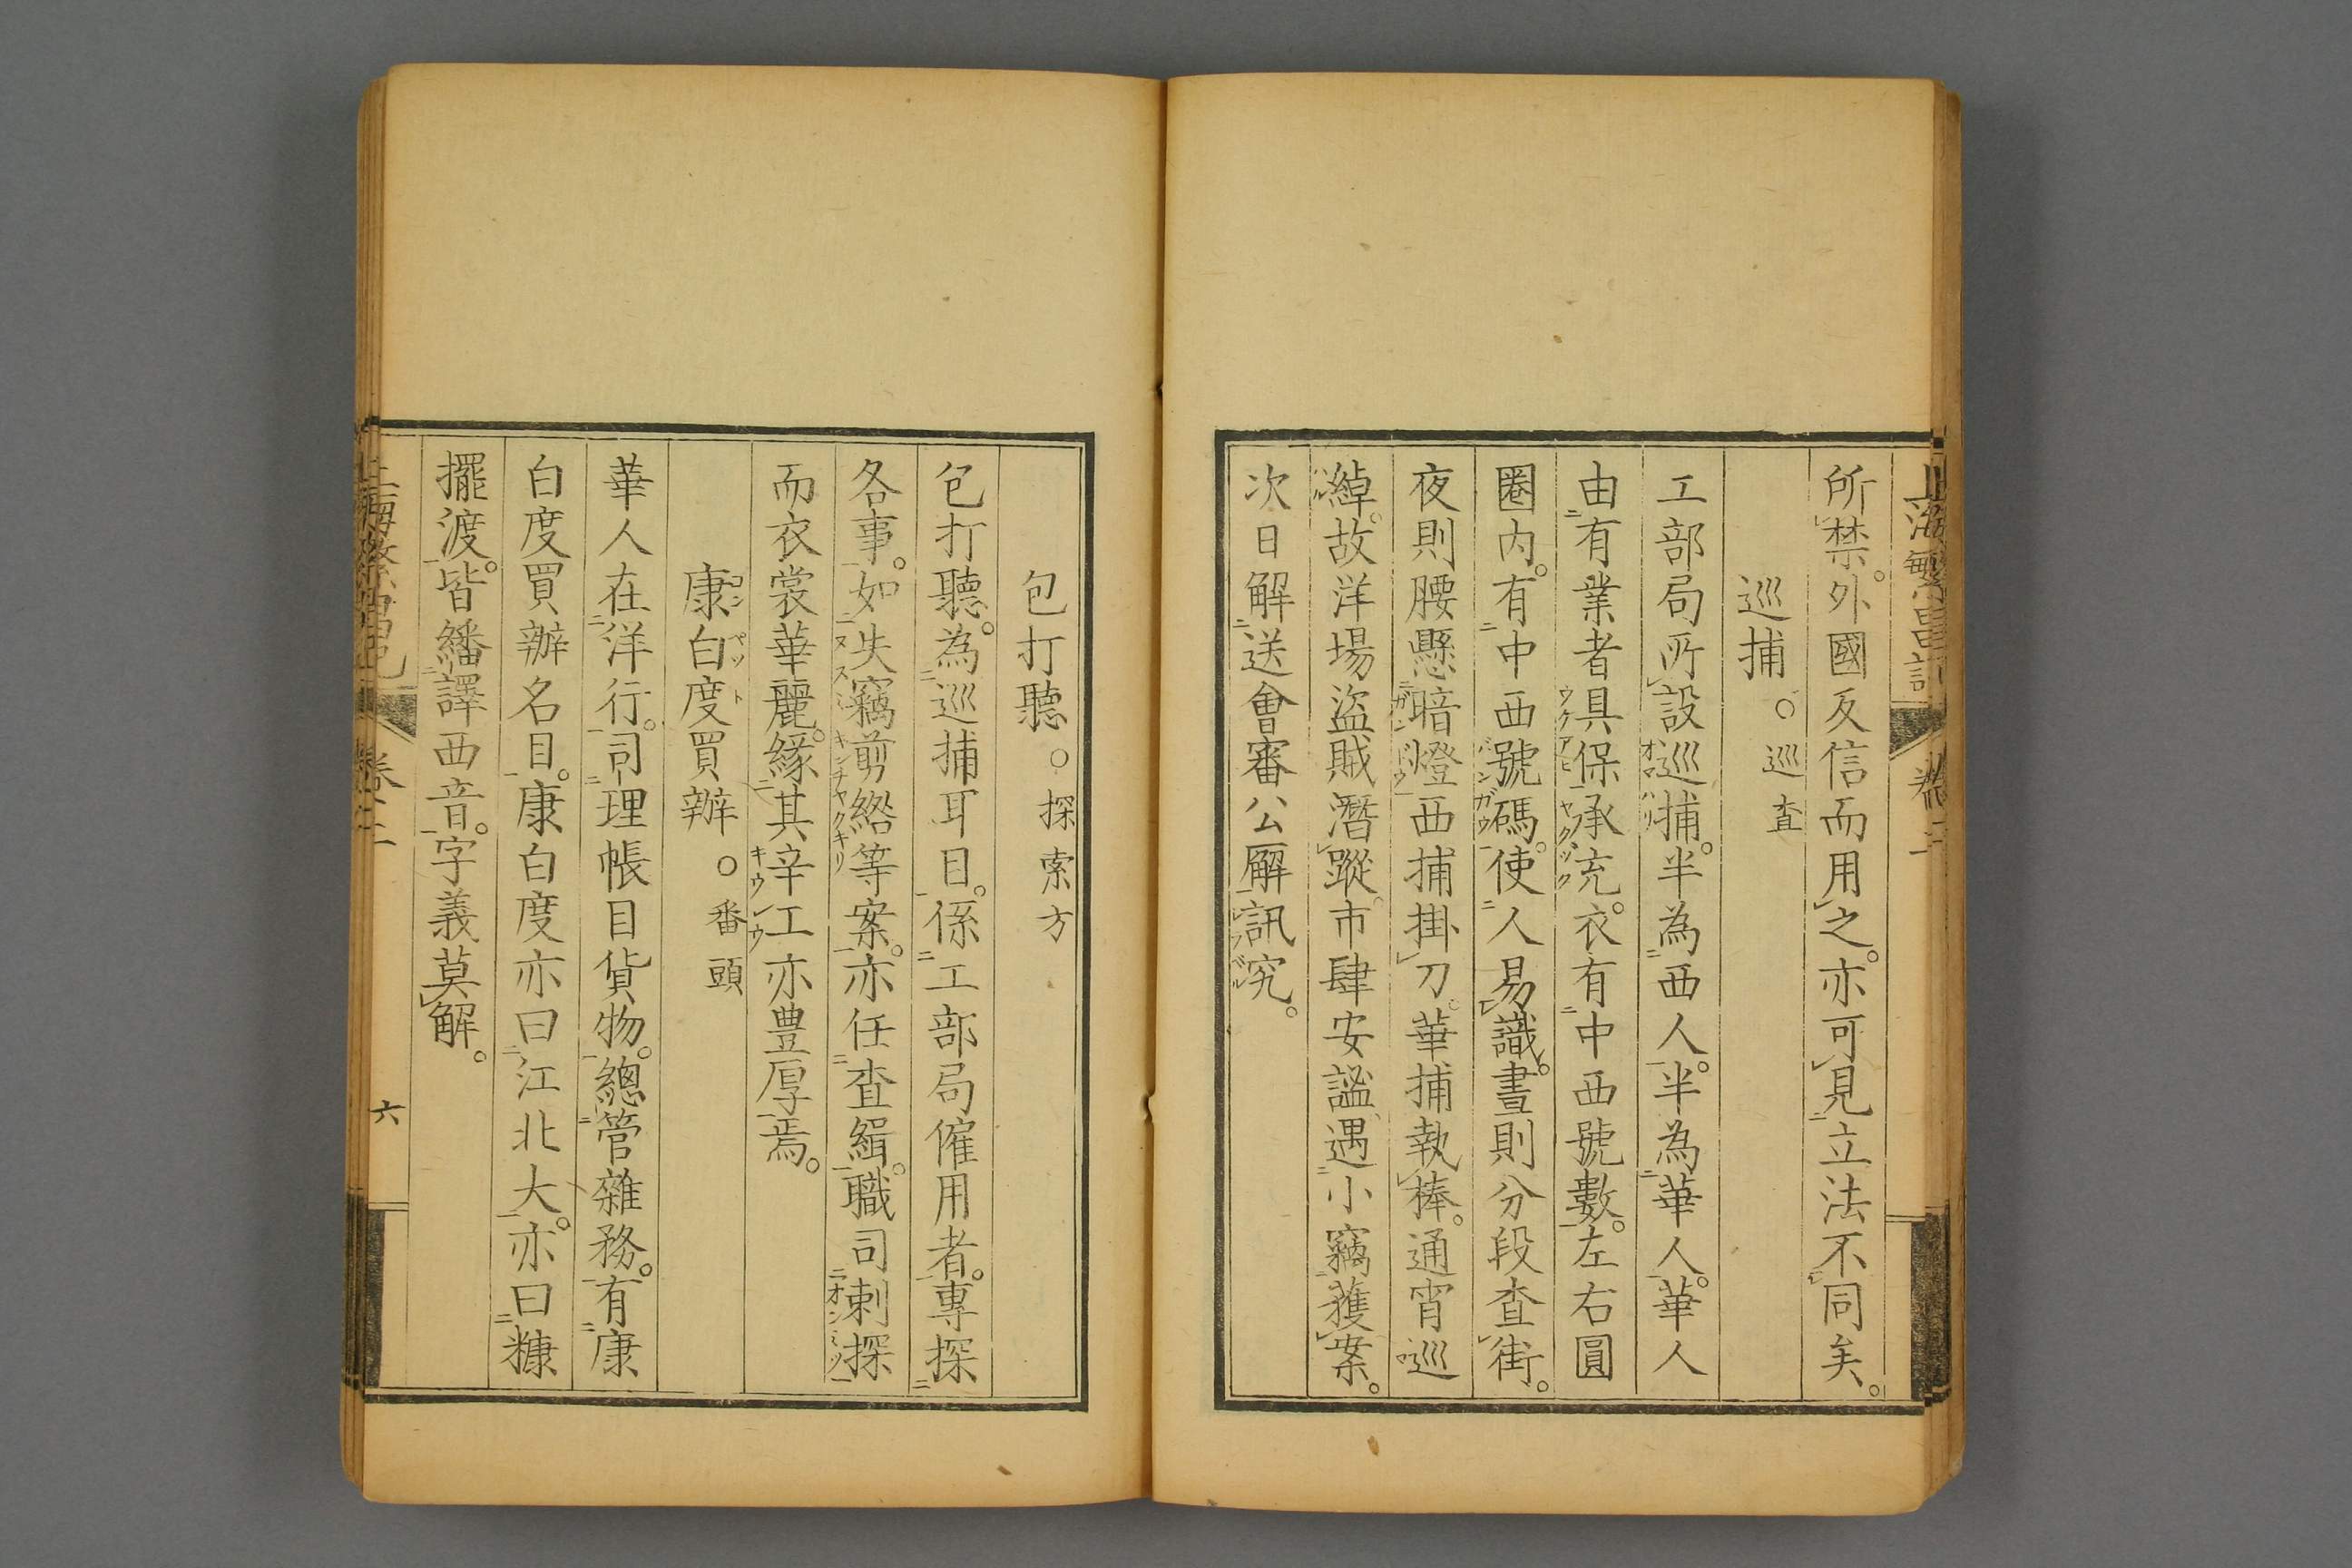 上海繁昌記 卷二
所禁。外國反信而用之。亦可見立法不同矣。
巡捕。○巡査
工部局所設巡捕。半為西人。半為華人。華人
由有業者具保承充。衣有中西號數。左右圓
圈内。有中西號碼。使人易識。晝則分段查街。
夜則腰懸暗燈。西捕掛刀。華捕執棒。通宵巡
綽。故洋場盜賊潛蹤。市肆安謐。遇小竊獲案。
次日解送會審公廨訊究。
包打聽。○探索方
包打聽。為巡捕耳目。係工部局僱用者。專探
各事。如失竊剪綹等案。亦任查緝。職司刺探
而衣裳華麗。緣其辛工亦豊厚焉。
康白度買辦。○番頭
華人在洋行。司理帳目貨物。總管雜務。有康
白度買辦名目。康白度亦曰江北大。亦曰糠
擺渡。皆繙譯西音。字義莫解。
上海繁昌記 卷二 六